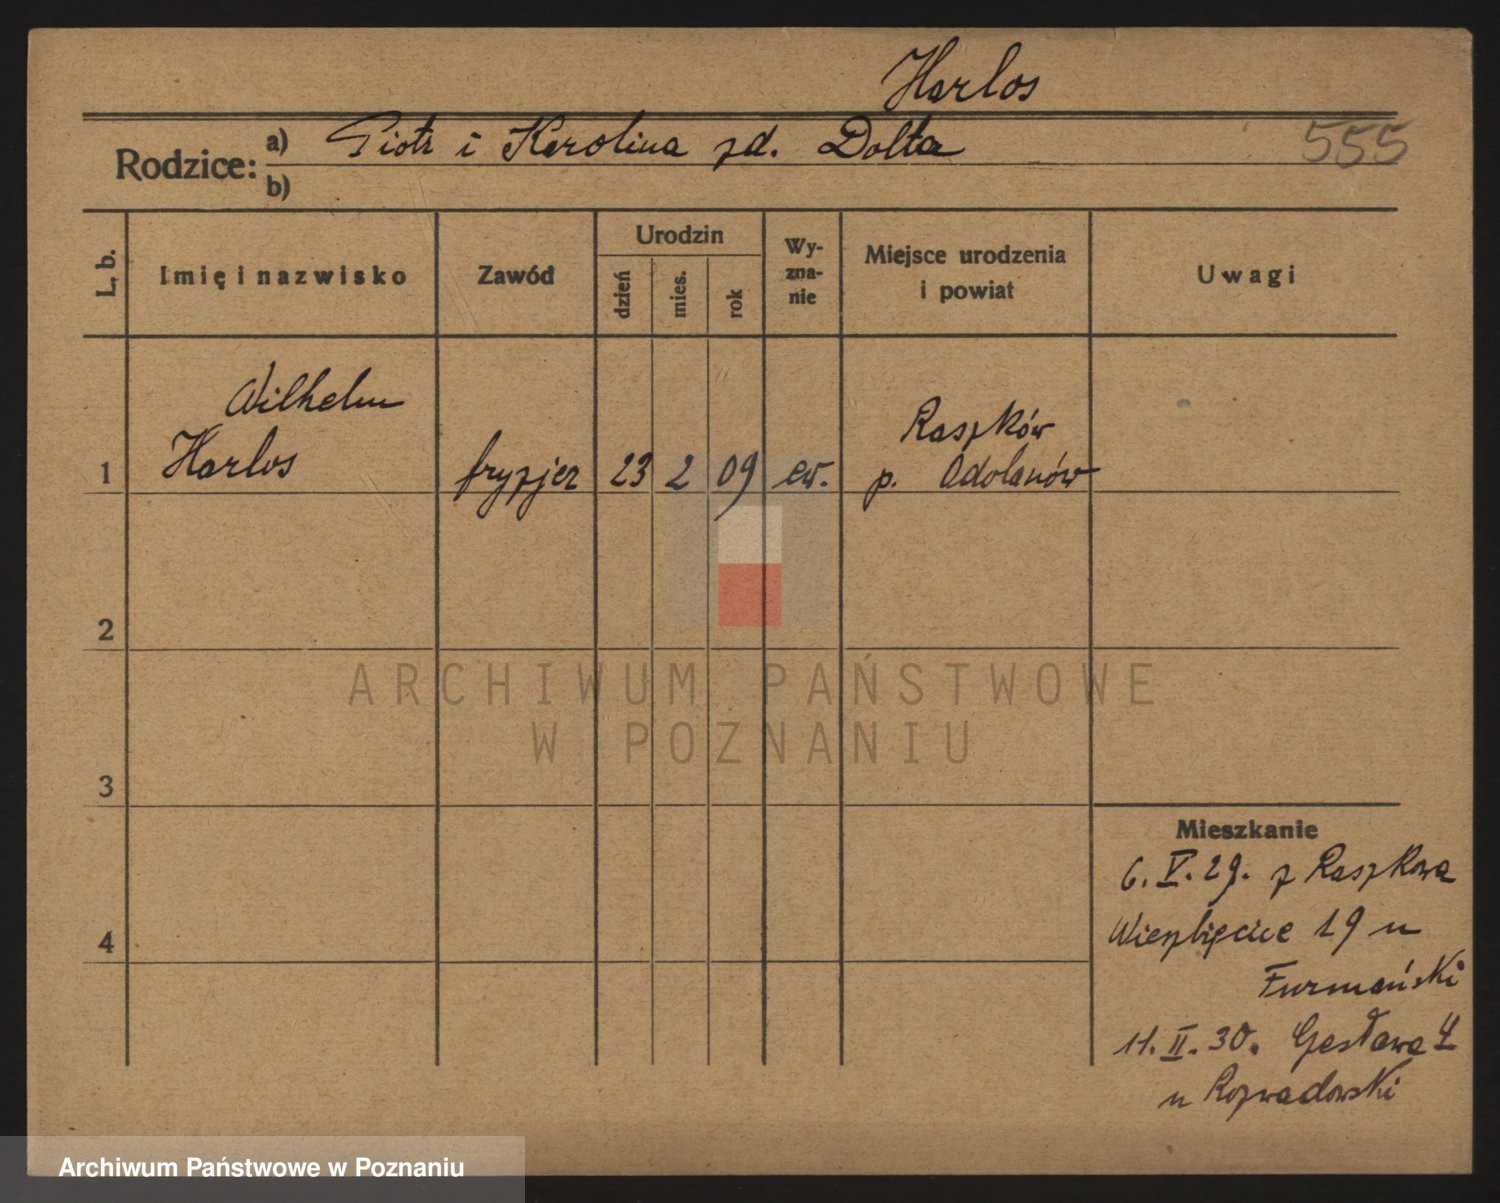 Harlos
Rodzice:
a) Piotr i Karolina zd. Dolta
555
b)
L. b.
Imię i nazwisko
Zawód
Urodzin
dzień
mies.
rok
Wy-
zna-
nie
Miejsce urodzenia
i powiat
Uwagi
Wilhelm
Harlos
1
fryzjer
23
2
09
ew.
Raszków
p. Odolanów
2
ARCHIWUM PAŃSTWOWE
W POZNANIU
3
Mieszkanie
6. V. 29. z Raszkowa
Wierzbięcice 19 u
4
Furmański
11. II. 30. 
u Rozwadowski
Archiwum Państwowe w Poznaniu